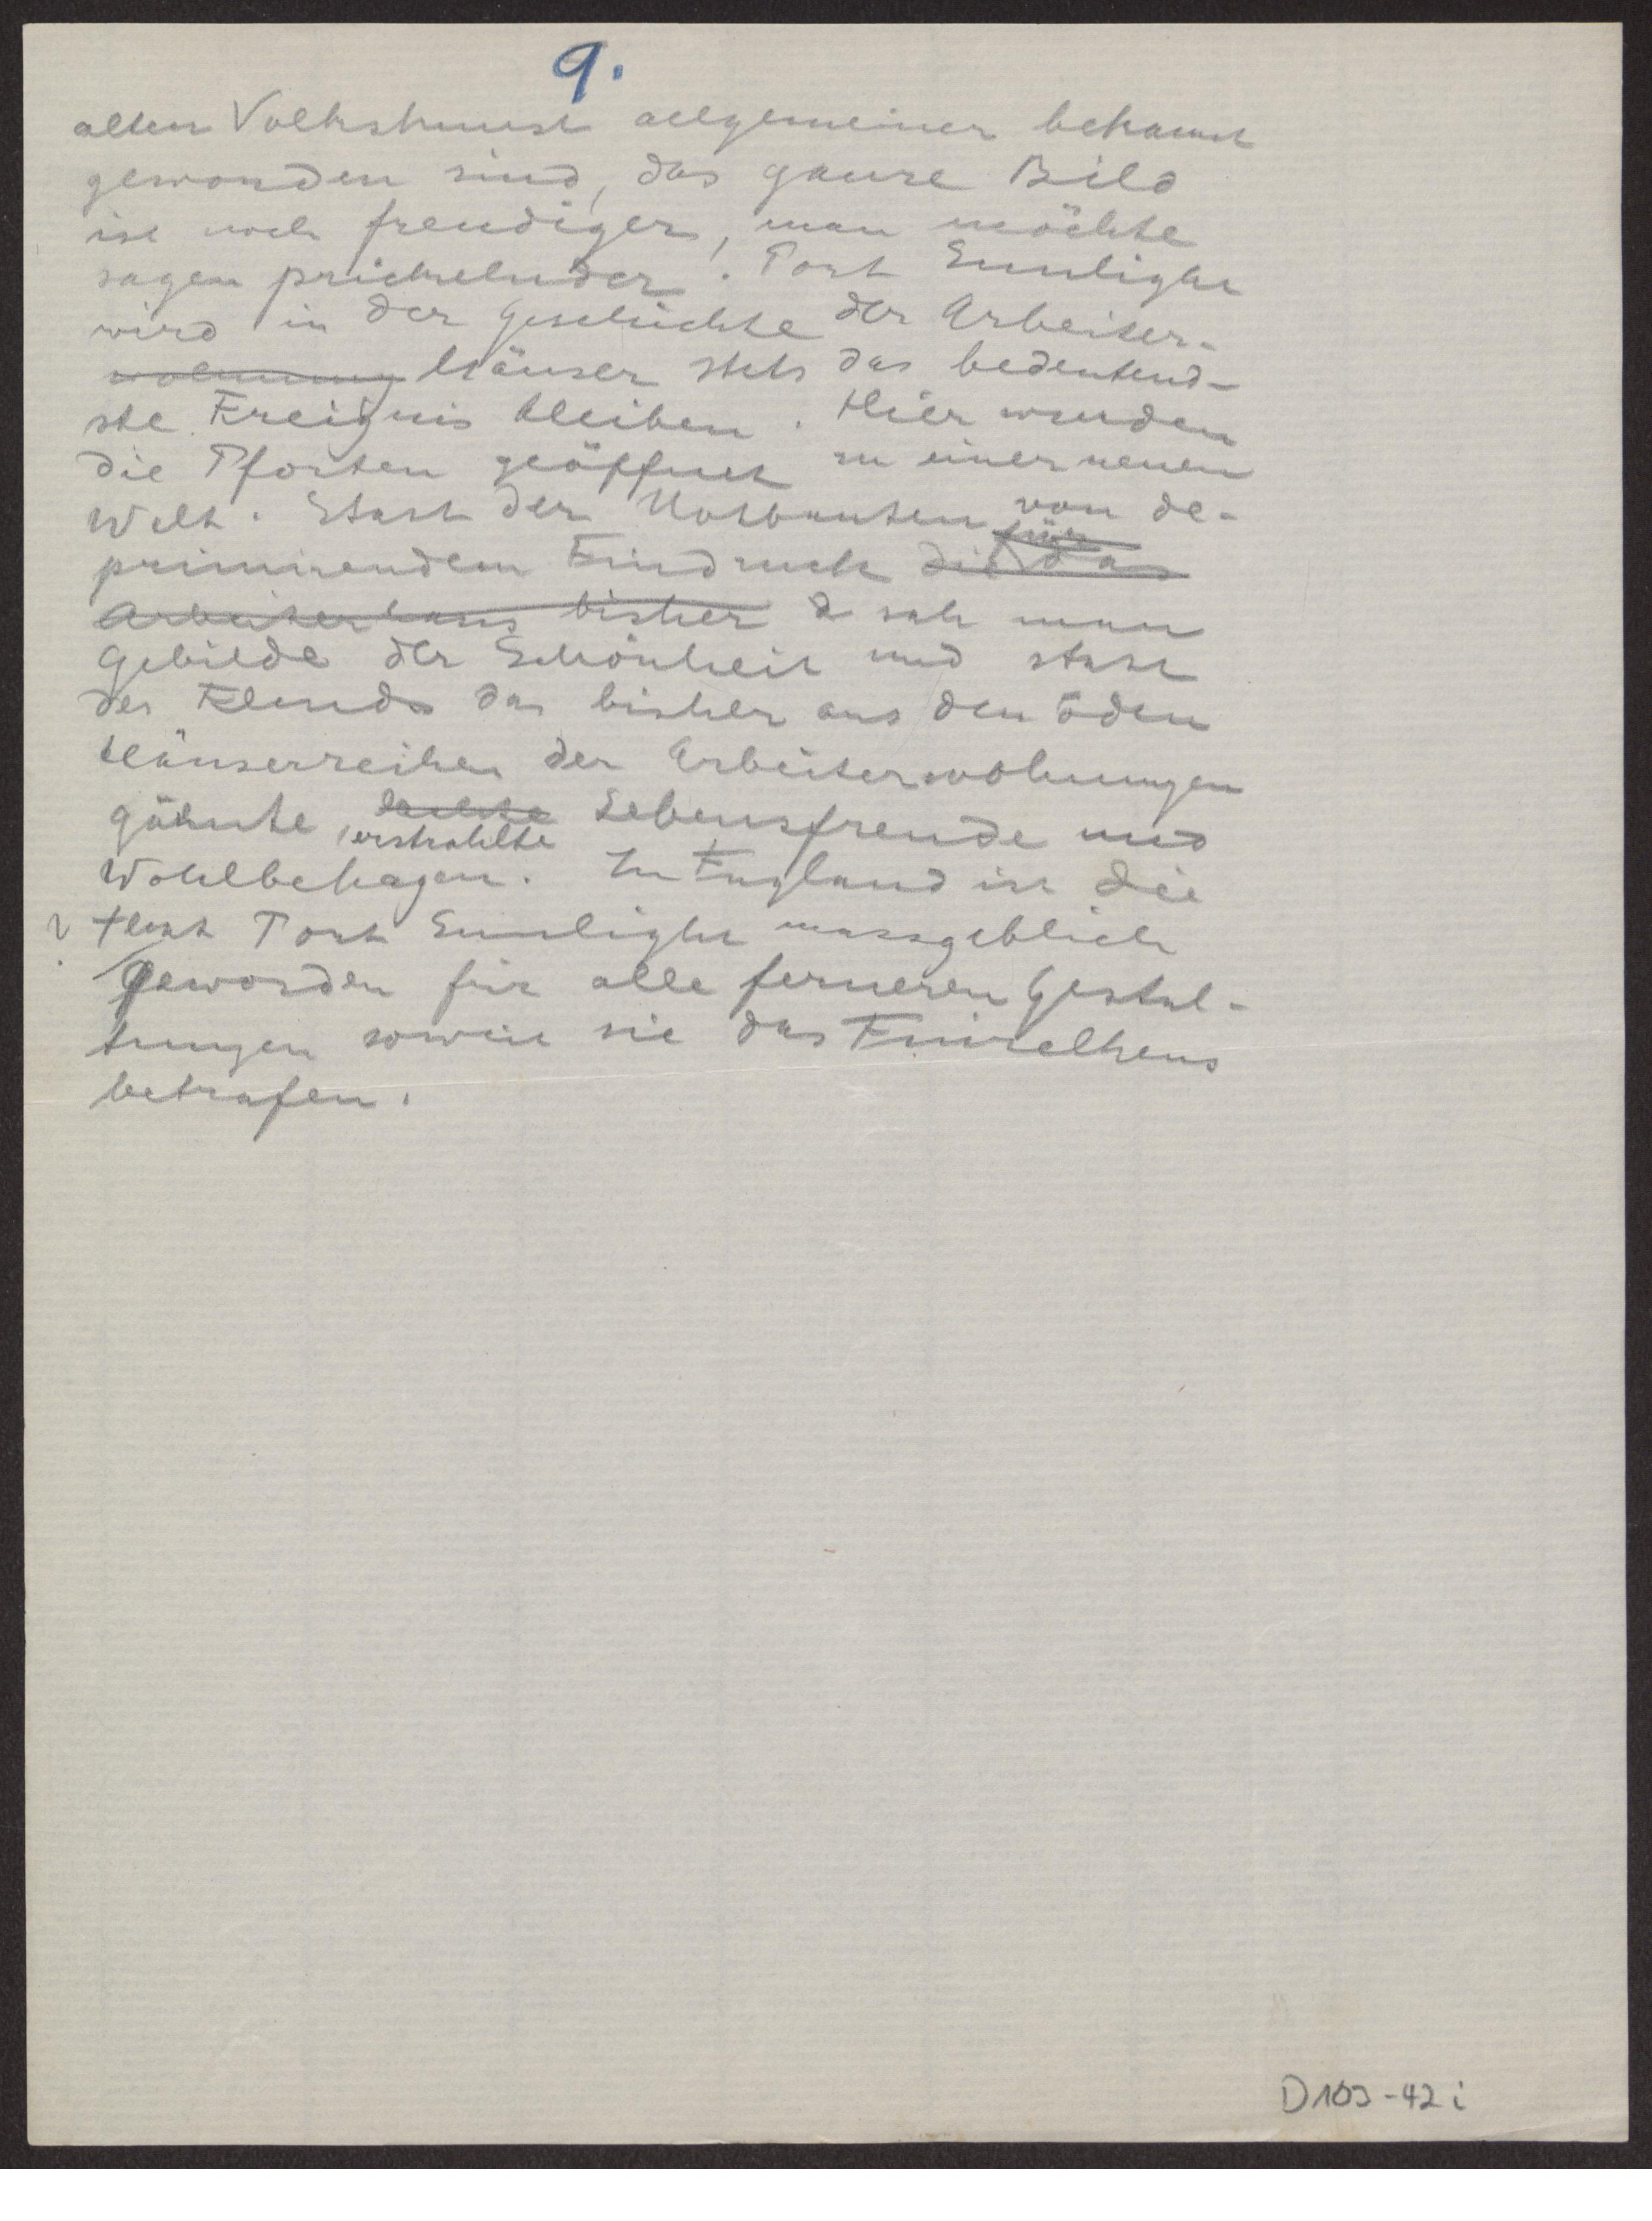 9.
alten Volkskunst allgemeiner bekannt
geworden sind, das ganze Bild
ist noch freudiger, man möchte
sagen prickelnder. Port Sunlight
wird in der Geschichte der Arbeiter-
wohnung häuser stets das bedeutend-
ste Ereignis bleiben. Hier wurden
die Pforten geöffnet zu einer neuen
Welt. Statt der Notbauten von de-
für
primirendem Eindruck die das
Arbeiterhaus bisher sah man
Gebilde der Schönheit und statt
des Elends das bisher aus den öden
Häuserreihen der Arbeiterwohnungen
gähnte, lachte Lebensfreude und
erstrahlte
Wohlbehagen. In England ist die
? Port Sunlight massgeblich
geworden für alle ferneren Gestal-
tungen soweit sie das Einzelhaus
betrafen.
D103-42i